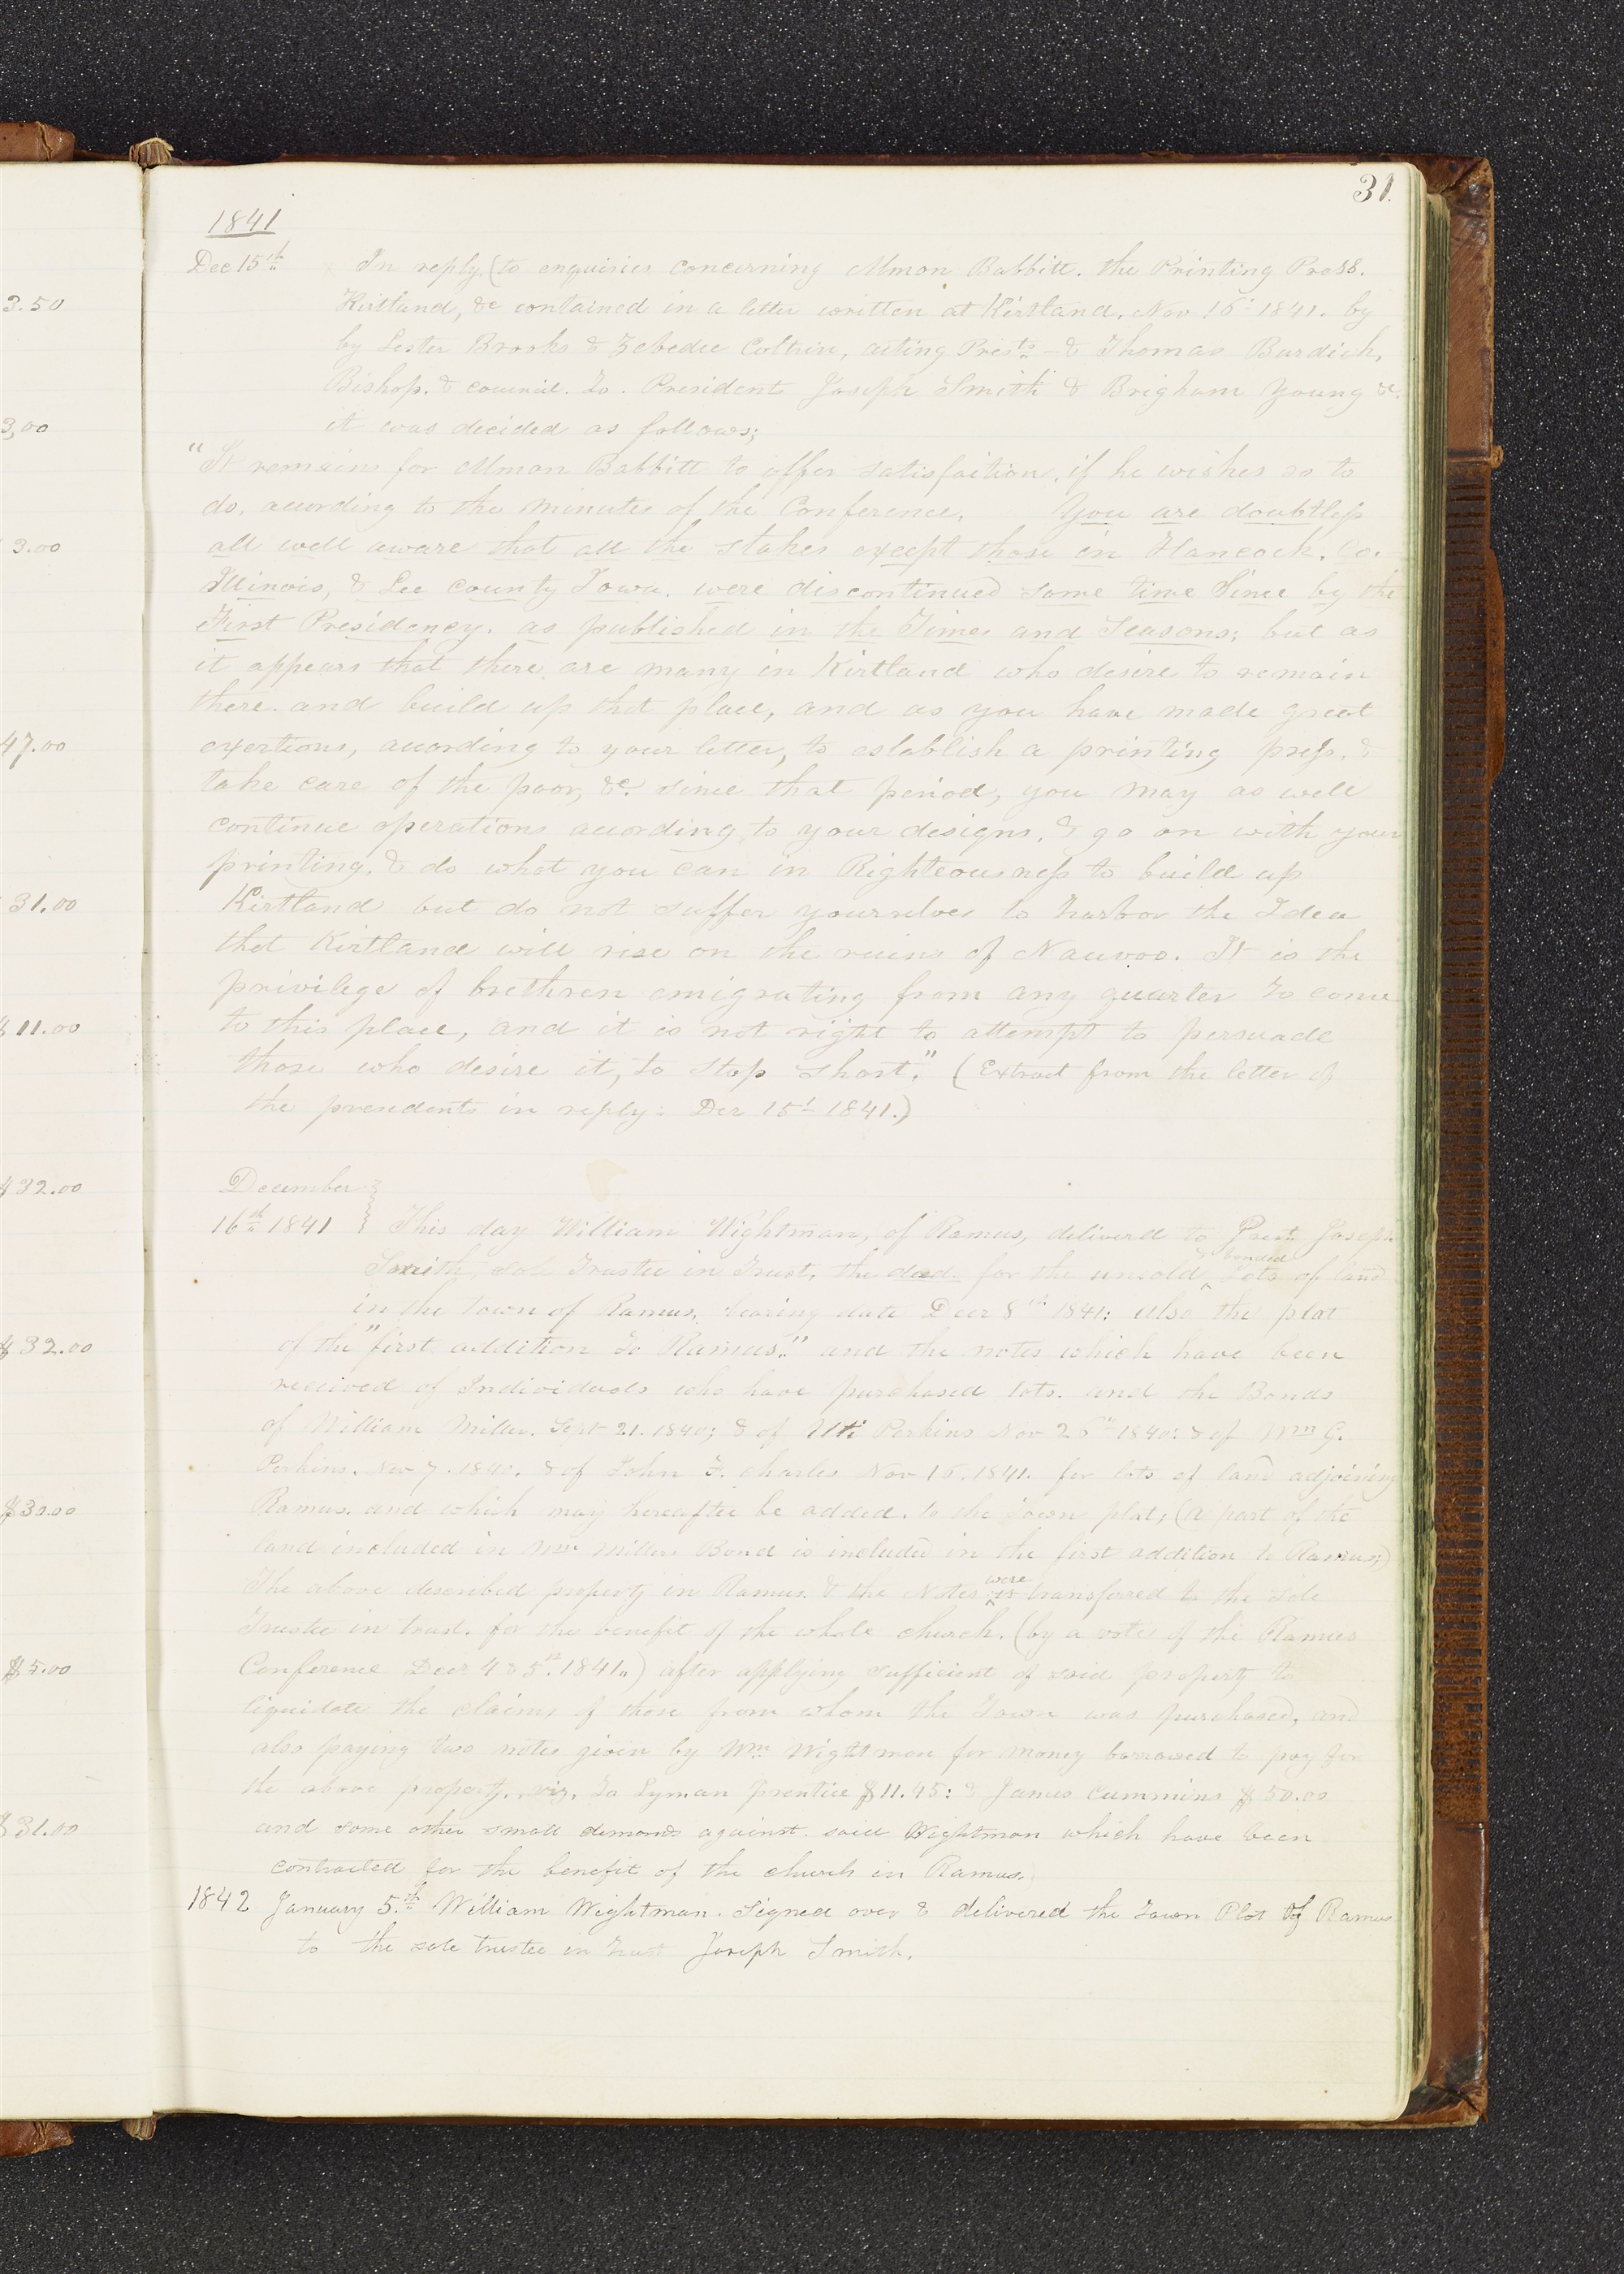 31.
1841
Dec 15th In reply, (to enquiries concerning Almon Babbitt. the Printing Press.
Kirtland, &c contained in a letter written at Kirtland. Nov 16th 1841. by
by Lester Brooks & Zebedee Coltrin, acting Prests - & Thomas Burdick,
Bishop. & council. To. President Joseph Smith & Brigham Young &c.
it was decided as follows;
"It remains for Almon Babbitt to offer satisfaction, if he wishes so to
do, according to the minutes of the Conference. You are doubtless
all well aware that all the stakes except those in Hancock. Co.
Illinois, & Lee county Iowa. were discontinued some time Since by the
First Presidency. as published in the Times and Seasons; but as
it appears that there are many in Kirtland who desire to remain
there. and build up that place, and as you have made great
exertions, according to your letter, to establish a printing press, &
take care of the poor, &c. since that period, you may as well
continue operations according to your designs, & go on with your
printing, & do what you can in Righteousness to build up
Kirtland but do not suffer yourselves to harbor the Idea
that Kirtland will rise on the ruins of Nauvoo. It is the
privilege of brethren emigrating from any quarter to come
to this place, and it is not right to attempt to persuade
those who desire it, to stop short." (Extract from the letter of
the presidents in reply: Dec 15t 1841.)
December
16th 1841 This day William Wightman, of Ramus, deliverd to Prest. Joseph
Smith, sole Trustee in Trust, the deed. for the unsold & bonded Lots of land
in the town of Ramus, bearing date Decr 8th 1841: also the plat
of the "first addition to Ramus." and the notes which have been
received of Individuals who have purchased lots. and the Bonds
of William Miller. Sept 21. 1840; & of Ute Perkins Nov 26th 1840: & of Wm G.
Perkins. Nov 7. 1840. & of John F. Charles Nov 16. 1841. for lots of land adjoining
Ramus. and which may hereafter be added. to the town plat; (a part of the
land included in Wm Millers Bond is included in the first addition to Ramus;)
The above described property in Ramus. & the Notes were is transferred to the sole
Trustee in trust. for the benefit of the whole church. (by a vote of the Ramus
Conference Decr 4 & 5th. 1841.) after applying sufficient of said property to
liquidate the claims of those from whom the Town was purchased, and
also paying two notes given by Wm Wightman for money borrowed to pay for
the above property, viz, to Lyman prentice $11.45: & James Cummins $50.00
and some other small demands against. said Wightman which have been
contracted for the benefit of the church in Ramus.
1842 January 5th William Wightman. Signed over & delivered the town Plot of Ramus
to the sole trustee in trust Joseph Smith.
3.50
3,00
3.00
47.00
31.00
$11.00
$32.00
$32.00
$30.00
$5.00
$31.00